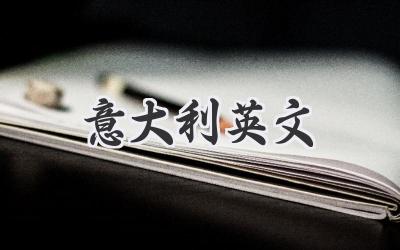 意大利英文